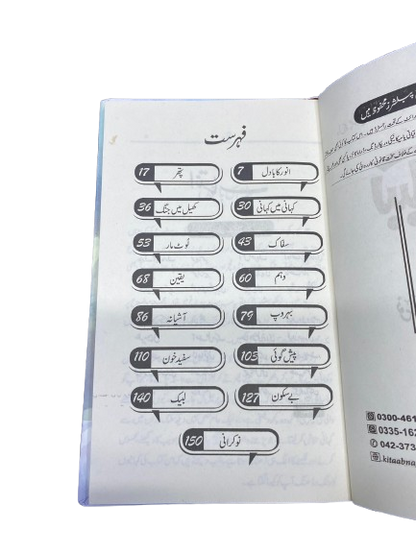 فہرست
انور کا بادل 7
پتھر 17
کہانی میں کہانی 30
کھیل میں جنگ 36
سفاک 43
لوٹ مار 53
وہم 60
یقین 68
بہروپ 79
آشیانہ 86
پیش گوئی 103
سفید خون 110
بے سکون 127
لبیک 140
نوکرانی 150
پبلشرز محفوظ ہیں
0300-461
0335-162
042-373
kitaabna